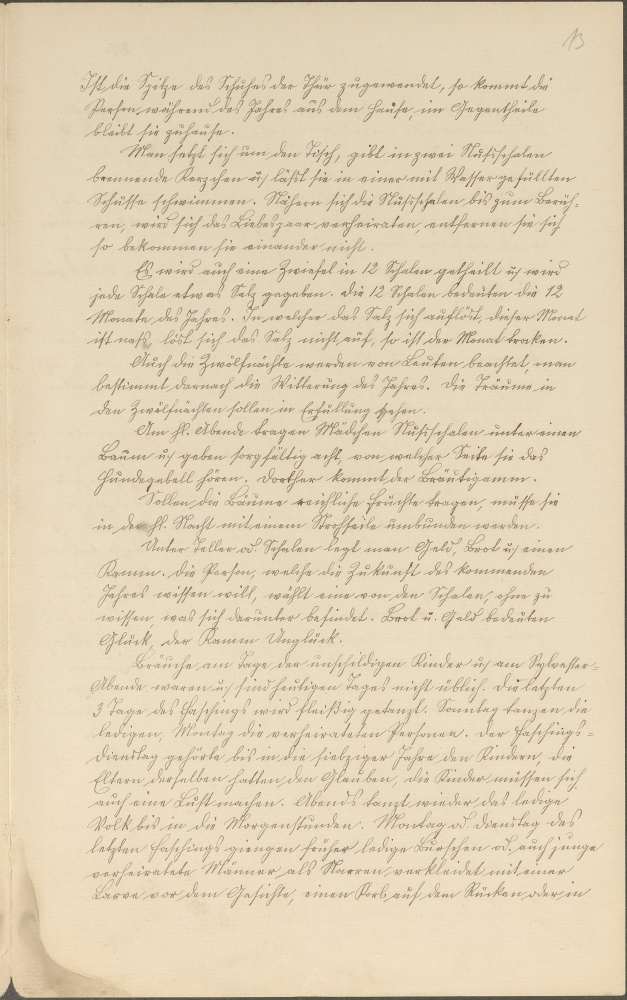 13
Ist die Spitze des Schuhes der Thür zugewendet, so kommt die
Person während des Jahres aus dem Hause, im Gegentheile
bleibt sie zuhause.
Man setzt sich um den Tisch, gibt in zwei Nußschalen
brennende Kerzchen u. läßt sie in einer mit Wasser gefüllten
Schüssel schwimmen. Nähern sich die Nußschalen bis zum Berüh-
ren, wird sich das Liebespaar verheiraten, entfernen sie sich
so bekommen sie einander nicht.
Es wird auch eine Zwiefel in 12 Schalen getheilt u. wird
jede Schale etwas Salz gegeben. Die 12 Schalen bedeuten die 12
Monate des Jahres. In welcher das Salz sich auflöst, dieser Monat
ist naß, löst sich das Salz nicht auf, so ist der Monat troken.
Auch die Zwölfnächte werden von Leuten beachtet, man
bestimmt darnach die Witterung des Jahres. Die Träume in
den Zwölfnächten sollen in Erfüllung gehen.
Am hl. Abende tragen Mädchen Nußschalen unter einen
Baum u. geben sorgfältig acht, von welcher Seite sie das
Hundegebell hören. Dorther kommt der Bräutigamm.
Sollen die Bäume reichliche Früchte tragen, müsse sie
in der hl. Nacht mit einem Strohseile umbunden werden.
Unter Teller od. Schalen legt man Geld, Brot u. einen
Kamm. Die Person, welche die Zukunft des kommenden
Jahres wissen will, wählt eine von den Schalen, ohne zu
wissen, was sich darunter befindet. Brot u. Geld bedeuten
Glück, der Kamm Unglück.
Bräuche am Tage der unschuldigen Kinder u. am Sylvester-
Abende waren u. sind heutigen Tages nicht üblich. Die letzten
3 Tage des Faschings wird fleißig getanzt. Sonntag tanzen die
ledigen, Montag die verheirateten Personen. Der Faschings-
dienstag gehörte bis in die siebziger Jahre den Kindern, die
Eltern derselben hatten den Glauben, die Kinder müssen sich
auch eine Lust machen. Abends tanzt wieder das ledige
Volk bis in die Morgenstunden. Montag od. Dienstag des
letzten Faschings giengen früher ledige Burschen od. auch junge
verheiratete Männer als Narren verkleidet mit einer
Larve vor dem Gesichte, einen Korb auf dem Rücken oder in